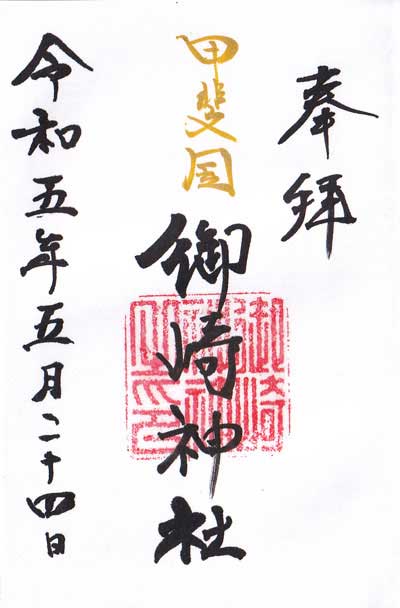 奉拝
甲斐国
御崎神社
令和五年五月二十四日